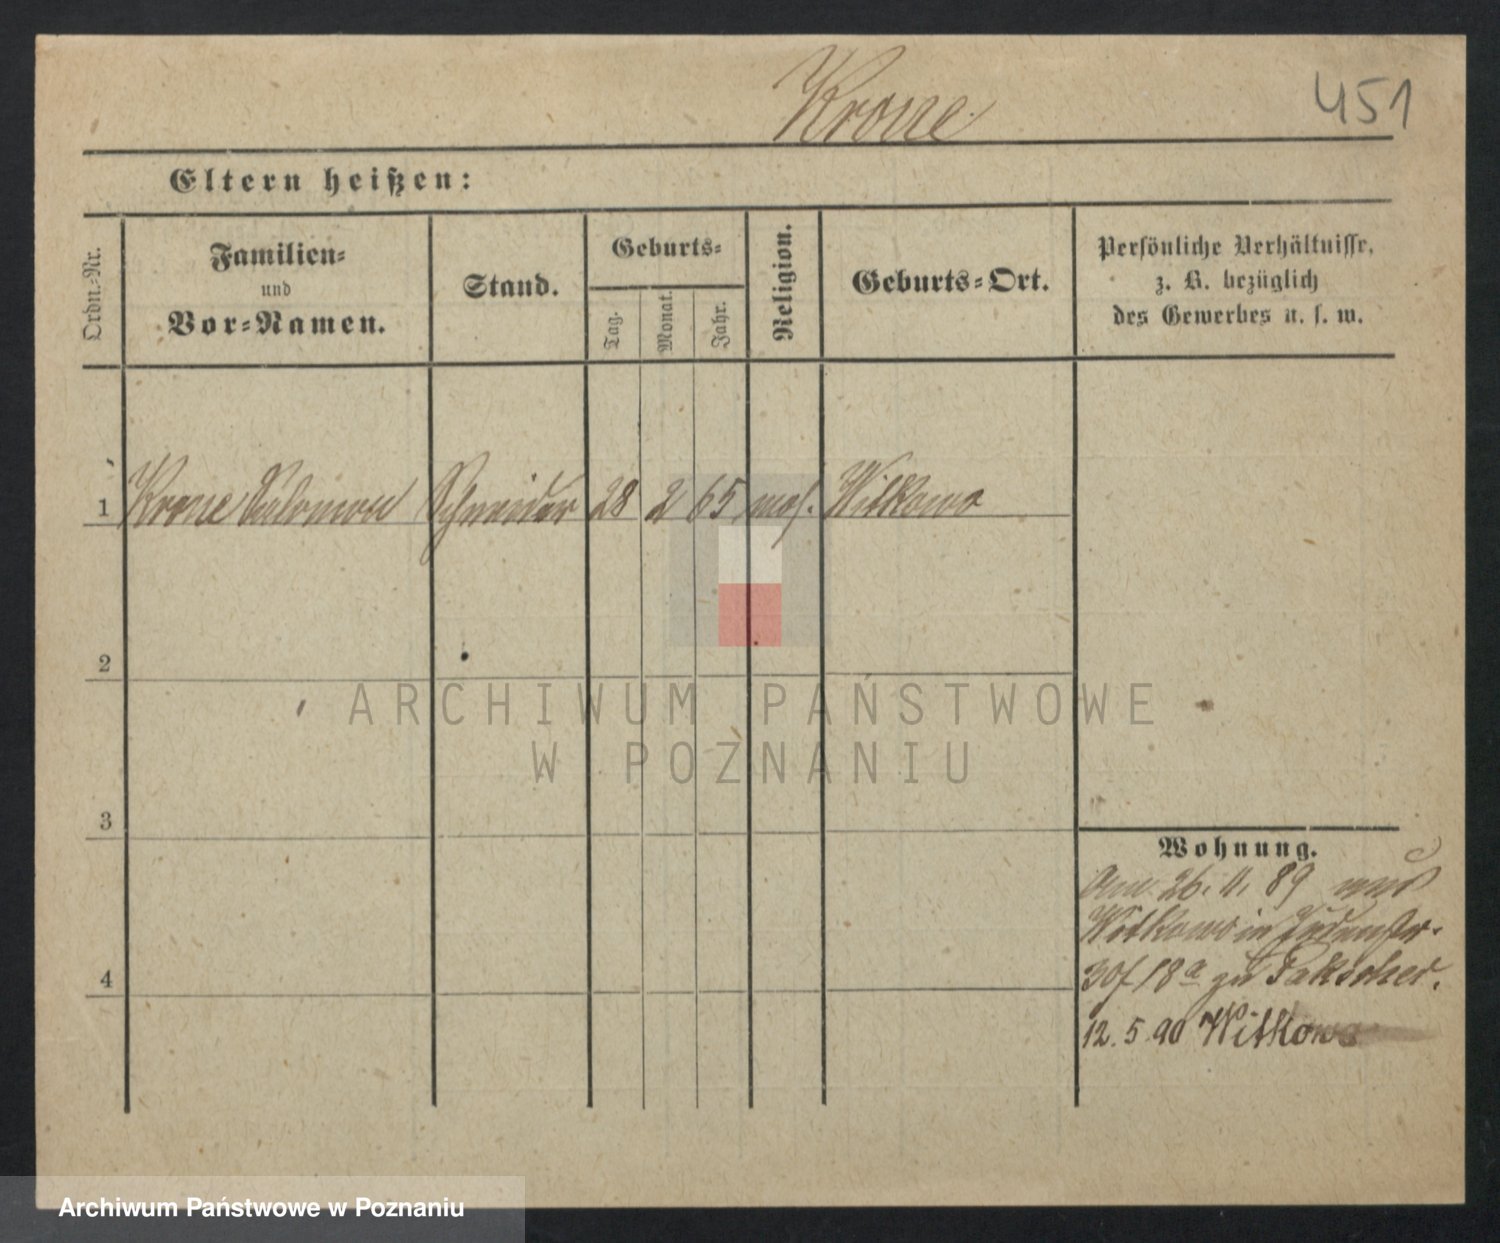 Krone
451
Eltern heißen:
Ordn.-Nr.
Familien-
und
Vor-Namen.
Stand.
Geburts-
Tag.
Monat.
Jahr.
Religion.
Geburts-Ort.
Persönliche Verhältnisse,
z. B. bezüglich
des Gewerbes u. s. w.
1 Krone Salomon Schneider 28 2 65 mos. Witkowo
2
3
4
Wohnung.
Am 26. 11. 89 aus
Witkowo in Judenstr.
30/18a zu Pakscher.
12. 5. 90 Witkowo
ARCHIWUM PAŃSTWOWE
W POZNANIU
Archiwum Państwowe w Poznaniu